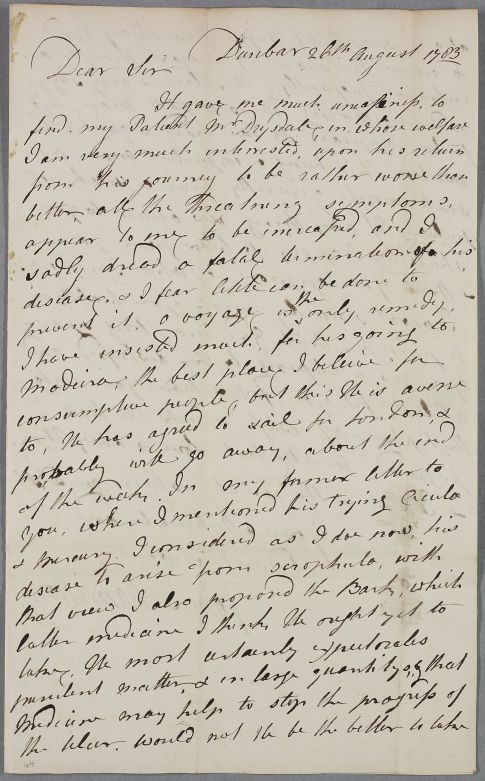 Dunbar 26th August 1783
Dear Sir
It gave me much uneasiness, to
find my Patient Mr Drysdale, in whose welfare
I am very much interested, upon his return
from his journey to be rather worse than
better, all the Threatning symptoms,
appear to me to be increased, and I
sadly dread a fatal termination of his
disease, & I fear little can be done to
prevent it. a voyage is the only remedy,
I have insisted much, for his going to
Madeira, the best place I beleive for
consumptive people, but this He is averse
to, He has agreed to sail for London, &
probably will go away, about the end
of the week. In my former letter to
you, where I mentioned his trying Cicuta
& Mercury. I considered as I doe now, his
disease to arise from scrophula, with
that view I also proposed the Bark, which
latter medicine I think He ought yet to
take, He most certainly expectorates
purulent matter, & in large quantitys, & that
Medicine may help to stop the progress of
the ulcer. would not He be the better to take
44